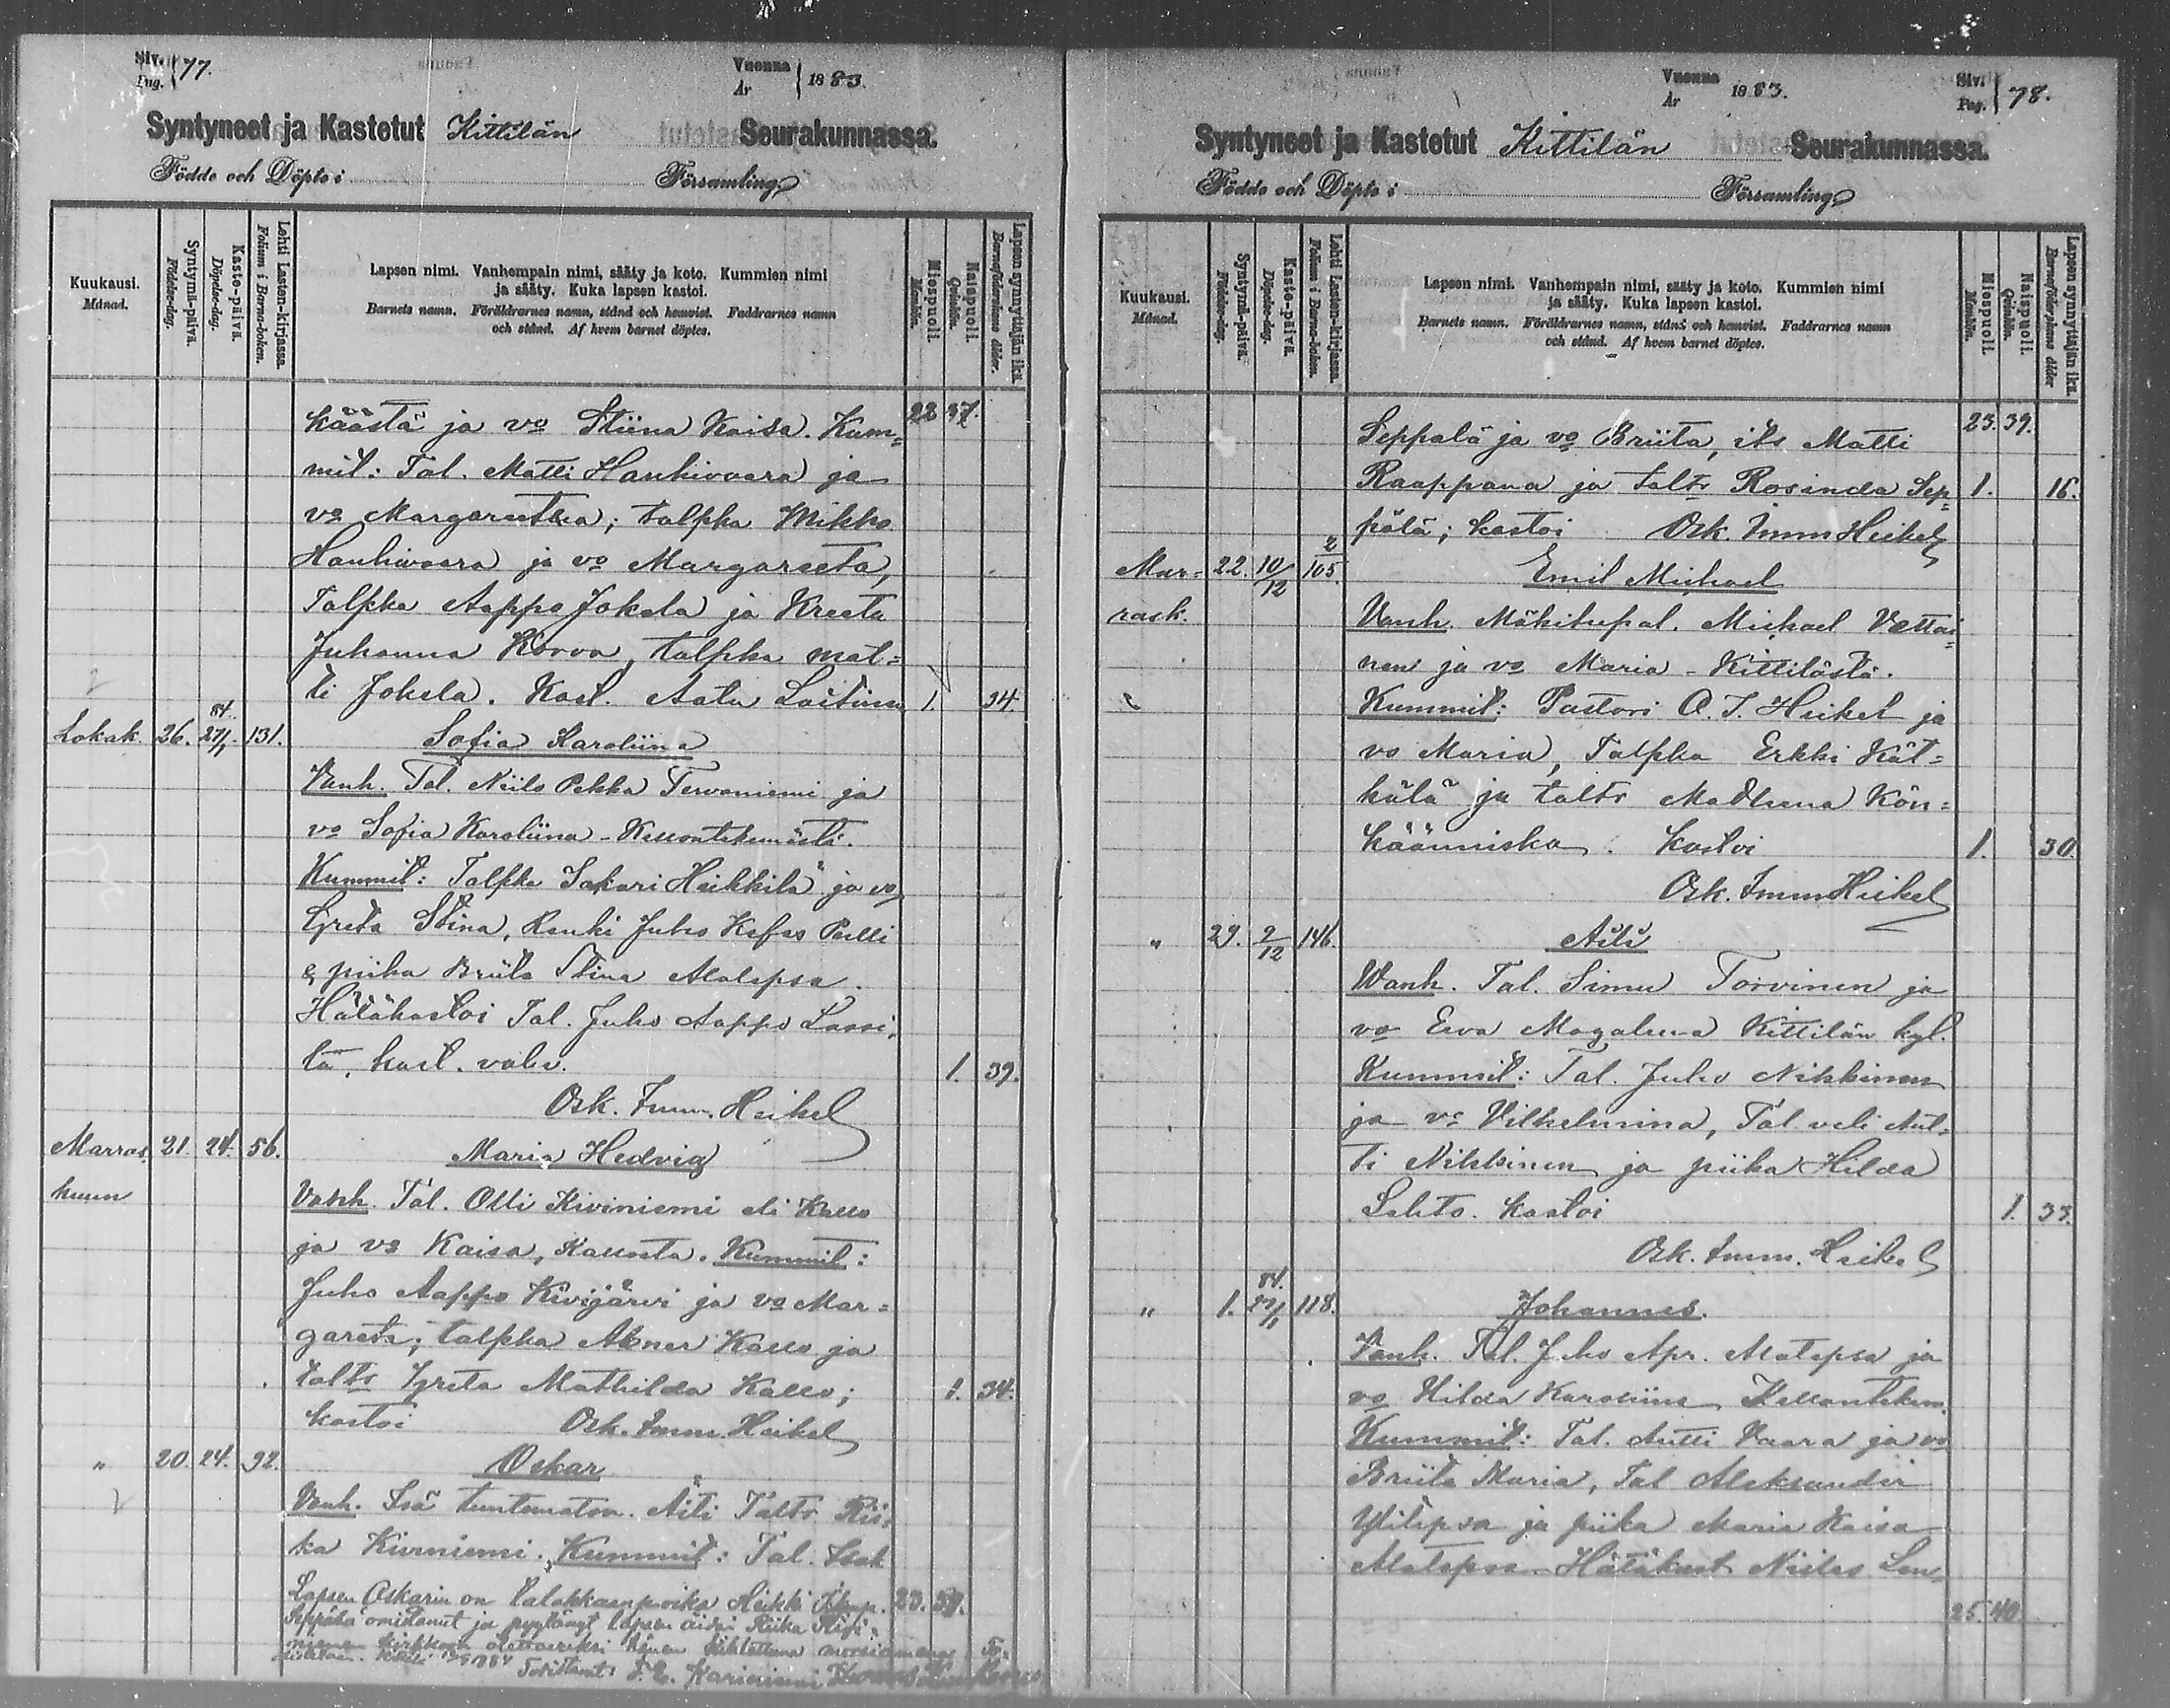 Siv. Pag. 77.
Vuonna År 1883.
Syntyneet ja Kastetut Kittilän Seurakunnassa.
Födde och Döpte i Församling
Kuukausi. Månad.
Syntymä-päivä. Födelse-dag.
Kaste-päivä. Döpelse-dag.
Lehti Lasten-kirjassa. Folium i Barna-boken.
Lapsen nimi. Vanhempain nimi, sääty ja koto. Kummien nimi
ja sääty. Kuka lapsen kastoi.
Barnets namn. Föräldrarnes namn, stånd och hemvist. Faddrarnes namn
och stånd. Af hvem barnet döptes.
Miespuoli. Mankön.
Naispuoli. Qvinkön.
Lapsen synnyttäjän ikä. Barnaföderskans ålder.
käästä ja vo Stiina Kaisa. Kum= 22 37.
mit: Tal. Matti Hanhivaara ja
vo Margareetha; talpka Mikko
Hanhivaara ja vo Margareeta,
Talpka Aappo Jokela ja Kreeta
Juhanna Korva, talpka mat=
ti Jokela. Kast. Aatu Laitinen 1. 34.
Lokak. 26. 84. 27/1. 131. Sofia Karoliina
Vanh. Tal. Niilo Pekka Tervaniemi ja
vo Sofia Karoliina - Kellontekemästä.
Kummit: Talpka Sakari Heikkilä ja vo
Greta Stina, Renki Juho Kefas Palli
& piika Briita Stina Alatapsa.
Hätäkastoi Tal. Juho Aappo Lassi,
la, kast. vahv. 1. 39.
Osk. Imm. Heikel
Marras 21. 24. 56. Maria Hedvig
kuun Vanh. Tal. Olli Kiviniemi eli Kallo
ja vo Kaisa, Kallosta. Kummit:
Juho Aappo Kivijärvi ja vo Mar=
gareta; talpka Abner Kallo ja
taltr Greta Mathilda Kallo; 1. 34.
kastoi Osk. Imm. Heikel
" 20. 24. 92. Oskar
Vanh. Isä tuntematon. Äiti Taltr Rii=
ka Kiviniemi. Kummit: Tal. Isak
Lapsen Oskarin on talokkaanpoika Heikki 23. 39.
Seppälä omistanut ja pyytänyt lapsen äidin Riika Kivi=
niemen kirkkoon otettavaksi hänen kihlattuna
Todistavat:
Vuonna År 1883.
Siv. Pag. 78.
Syntyneet ja Kastetut Kittilän Seurakunnassa.
Födde och Döpte i Församling
Kuukausi. Månad.
Syntymä-päivä. Födelse-dag.
Kaste-päivä. Döpelse-dag.
Lehti Lasten-kirjassa. Folium i Barna-boken.
Lapsen nimi. Vanhempain nimi, sääty ja koto. Kummien nimi
ja sääty. Kuka lapsen kastoi.
Barnets namn. Föräldrarnes namn, stånd och hemvist. Faddrarnes namn
och stånd. Af hvem barnet döptes.
Miespuoli. Mankön.
Naispuoli. Qvinkön.
Lapsen synnyttäjän ikä. Barnaföderskans ålder
Seppälä ja vo Briita, its Matti 23. 39.
Raappana ja taltr Rosinda Sep= 1. 16.
pälä; kastoi Osk. Imm Heikel
Mar= 22. 10/12 2/105. Emil Michael
rask. Vanh. Mäkitupal. Michael Vettai=
nen ja vo Maria - Kittilästä.
Kummit: Pastori O. I. Heikel ja
vo Maria, Talpka Erkki Kät=
kälä ja taltr Madleena Kön=
kääniska. Kastoi 1. 30.
Osk. Imm Heikel
" 29. 9/12 146. Aili
Wanh. Tal. Simu Torvinen ja
vo Eeva Magaleena Kittilän kyl.
Kummit: Tal. Juho Nikkinen
ja vo Vilhelmina, Tal. veli Ant=
ti Nikkinen ja piika Hilda
Lehto. Kastoi 1. 33.
Osk. Imm. Heikel
" 1. 84. 27/1 118. Johannes.
Vanh. Tal. Juho Apr. Alatapsa ja
vo Hilda Karoliina Kellontekem.
Kummit: Tal. Antti Vaara ja vo
Briita Maria, Tal Aleksander
Ylitapsa ja piika Maria Kaisa
Alatapsa - Hätäkast Niilas Lan=
25. 40.